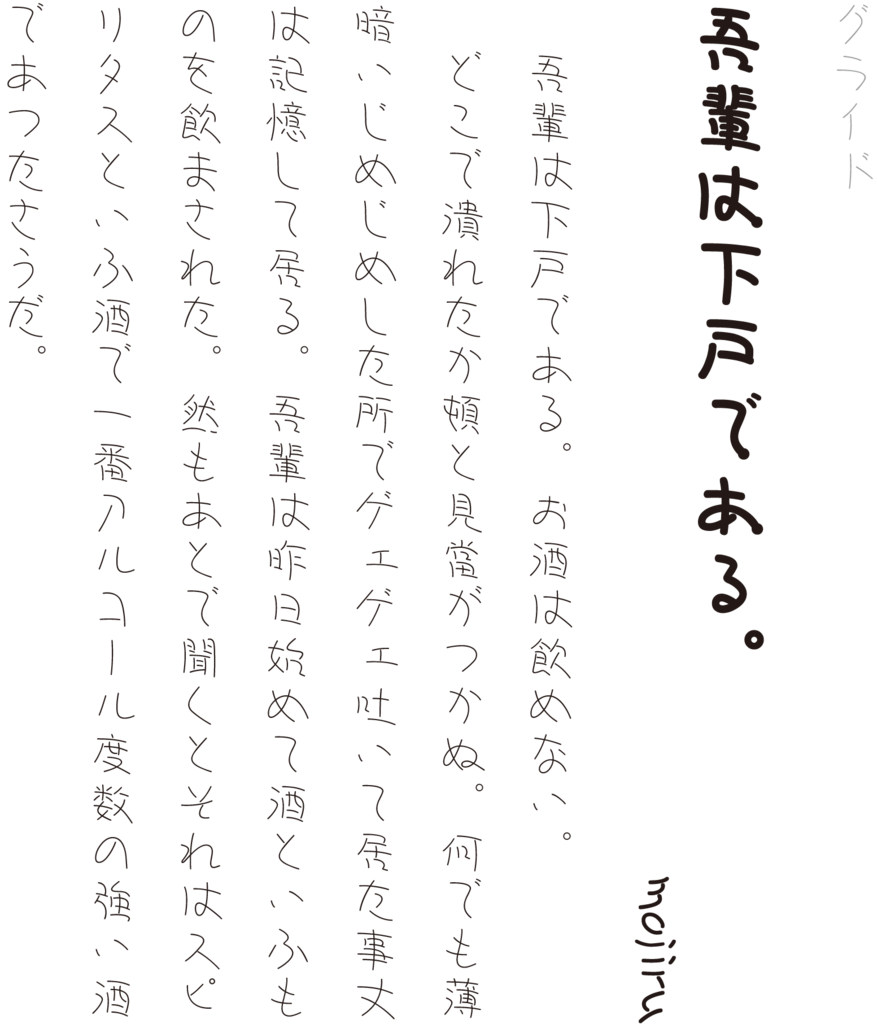 グライド
吾輩は下戸である。
mojiru
吾輩は下戸である。お酒は飲めない。
どこで潰れたか頓と見當がつかぬ。何でも薄
暗いじめじめした所でゲェゲェ吐いて居た事丈
は記憶して居る。吾輩は昨日始めて酒といふも
のを飲まされた。然もあとで聞くとそれはスピ
リタスといふ酒で一番アルコール度数の強い酒
であつたさうだ。